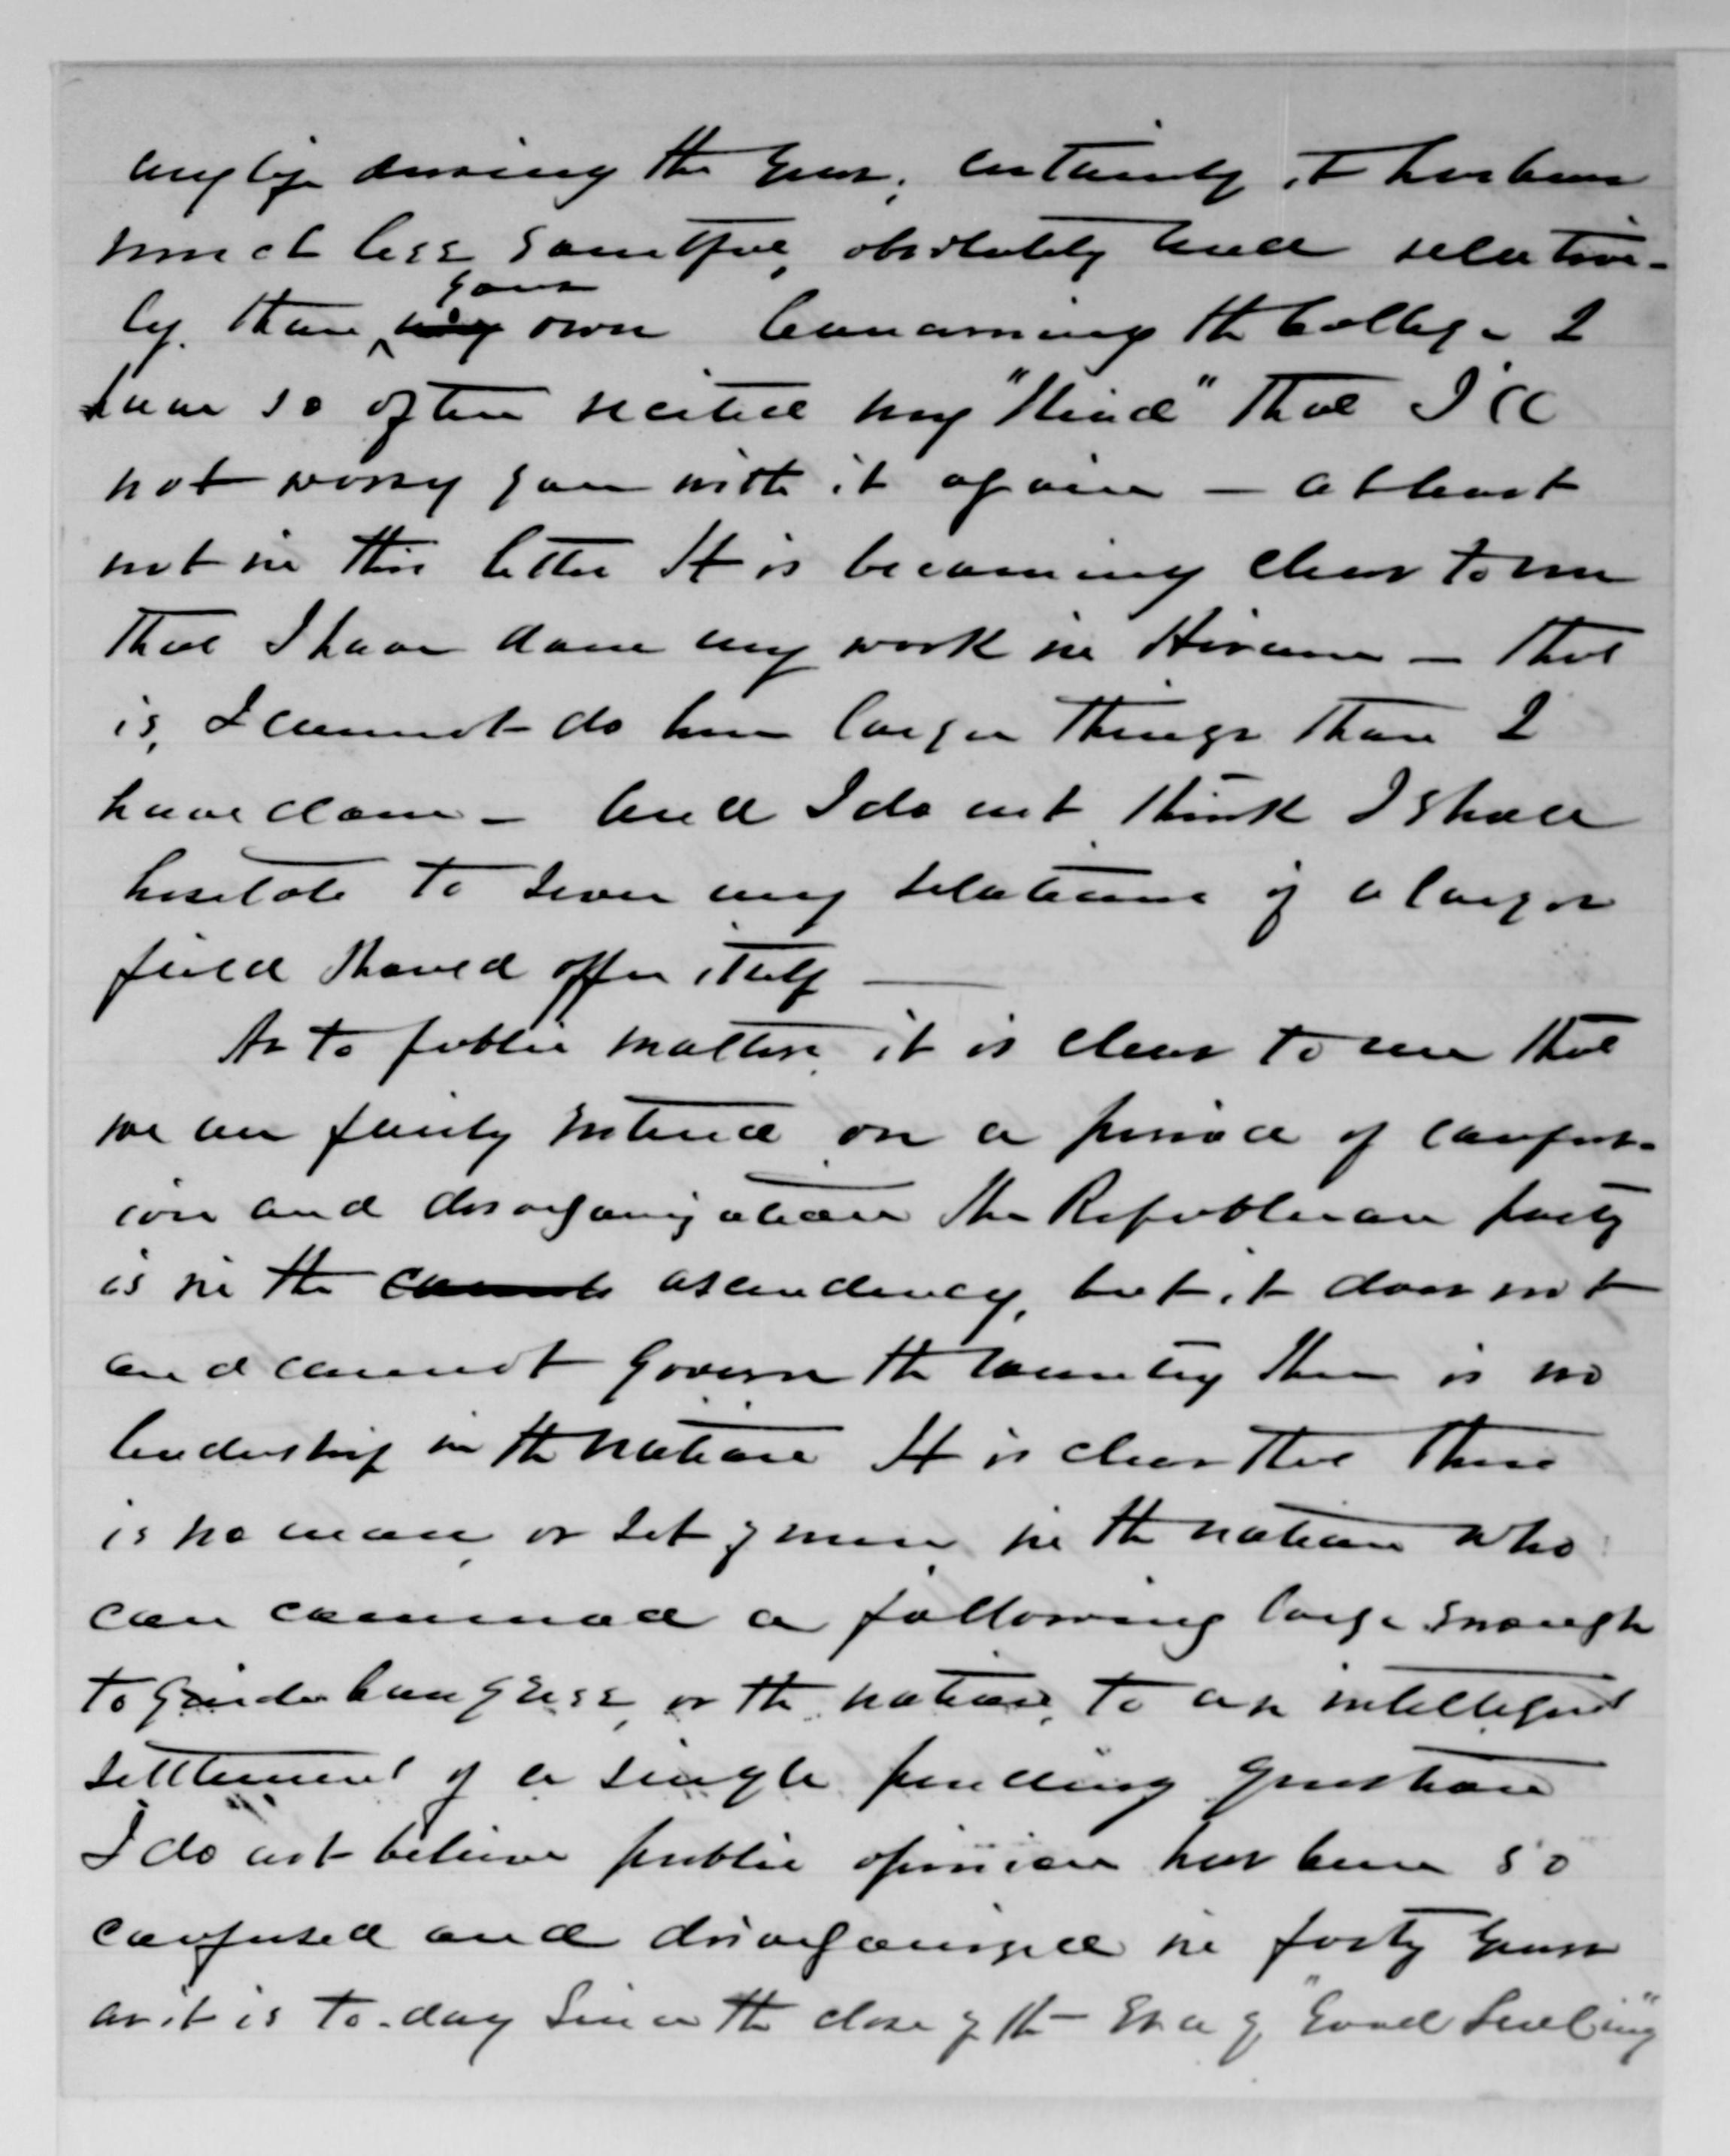 my life during the year; certainly it has been
much less eventful, absolutely and relative-
ly, than your my own Concerning the College I
have so often recited my "Mind" that I'll
not worry you with it again — at least
not in this letter It is becoming clear to me
that I have done my work in Hiram — that
is, I cannot do here larger things than I
have done — and I do not think I shall
hesitate to sever my relations if a larger
field should offer itself —
As to public matters, it is clear to me that
we are fairly entered on a period of confus-
ion and disorganization The Republican party
is in the ascendency, but it does not
and cannot govern the Country There is no
leadership in the Nation It is clear that there
is no man, or set of men, in the nation who
can command a following large enough
to guide Congress, or the nation, to an intelligent
settlement of a single pending question
I do not believe public opinion has been so
confused and disorganized in forty years
as it is to-day Since the close of the Era of "Good Feeling"